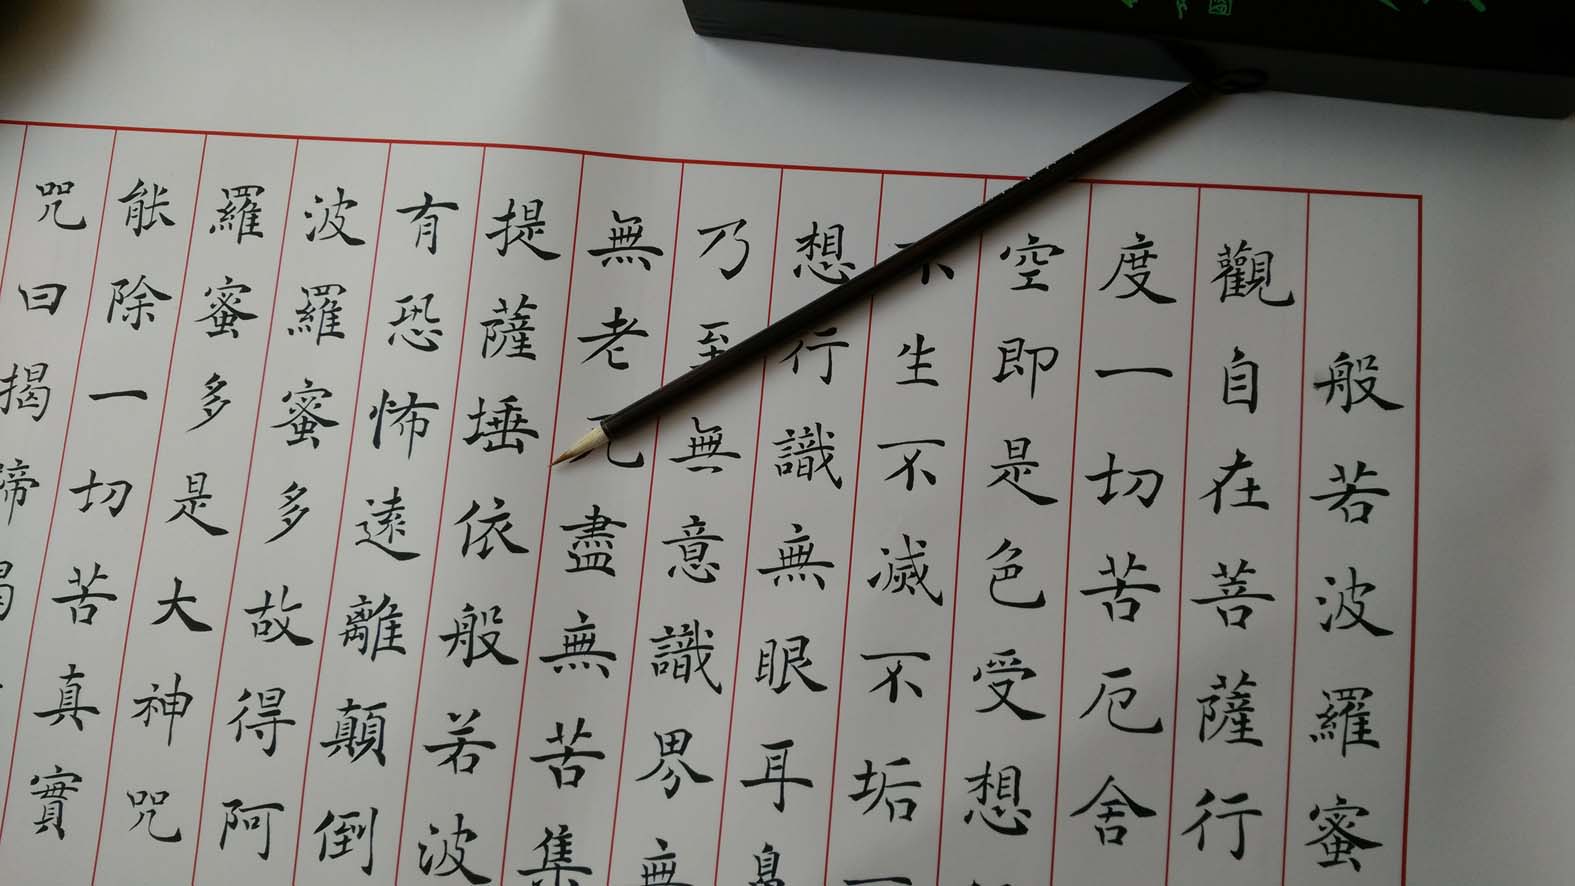 般若波羅蜜
觀自在菩薩行
度一切苦厄舍
空即是色受想
不生不滅不垢
想行識無眼耳鼻
乃至無意識界無
無老死盡無苦集
提薩埵依般若波
有恐怖遠離顛倒
波羅蜜多故得阿
羅蜜多是大神咒
能除一切苦真實
咒曰揭諦揭